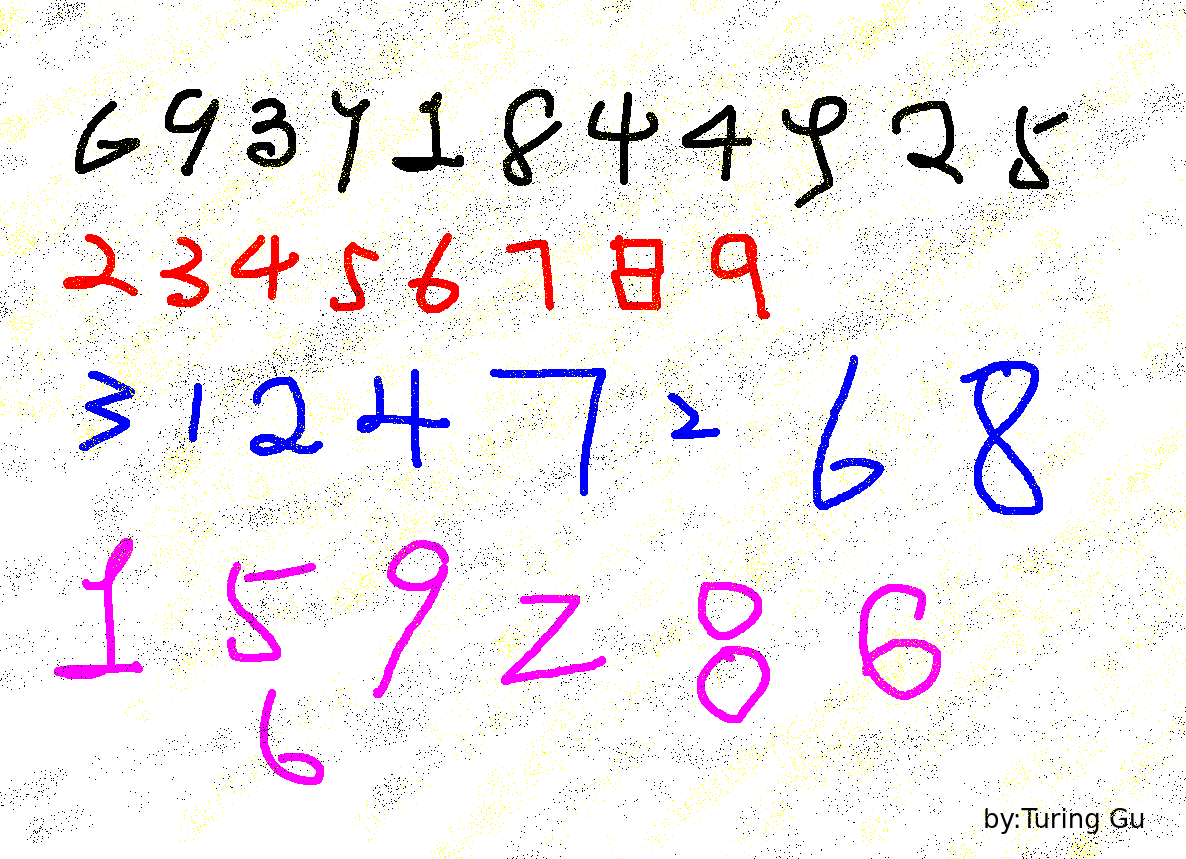 6 9 3 4 1 8 4 4 9 2 5
2 3 4 5 6 7 8 9
3 1 2 4 7 2 6 8
1 5 9 2 8 6
6
by:Turing Gu